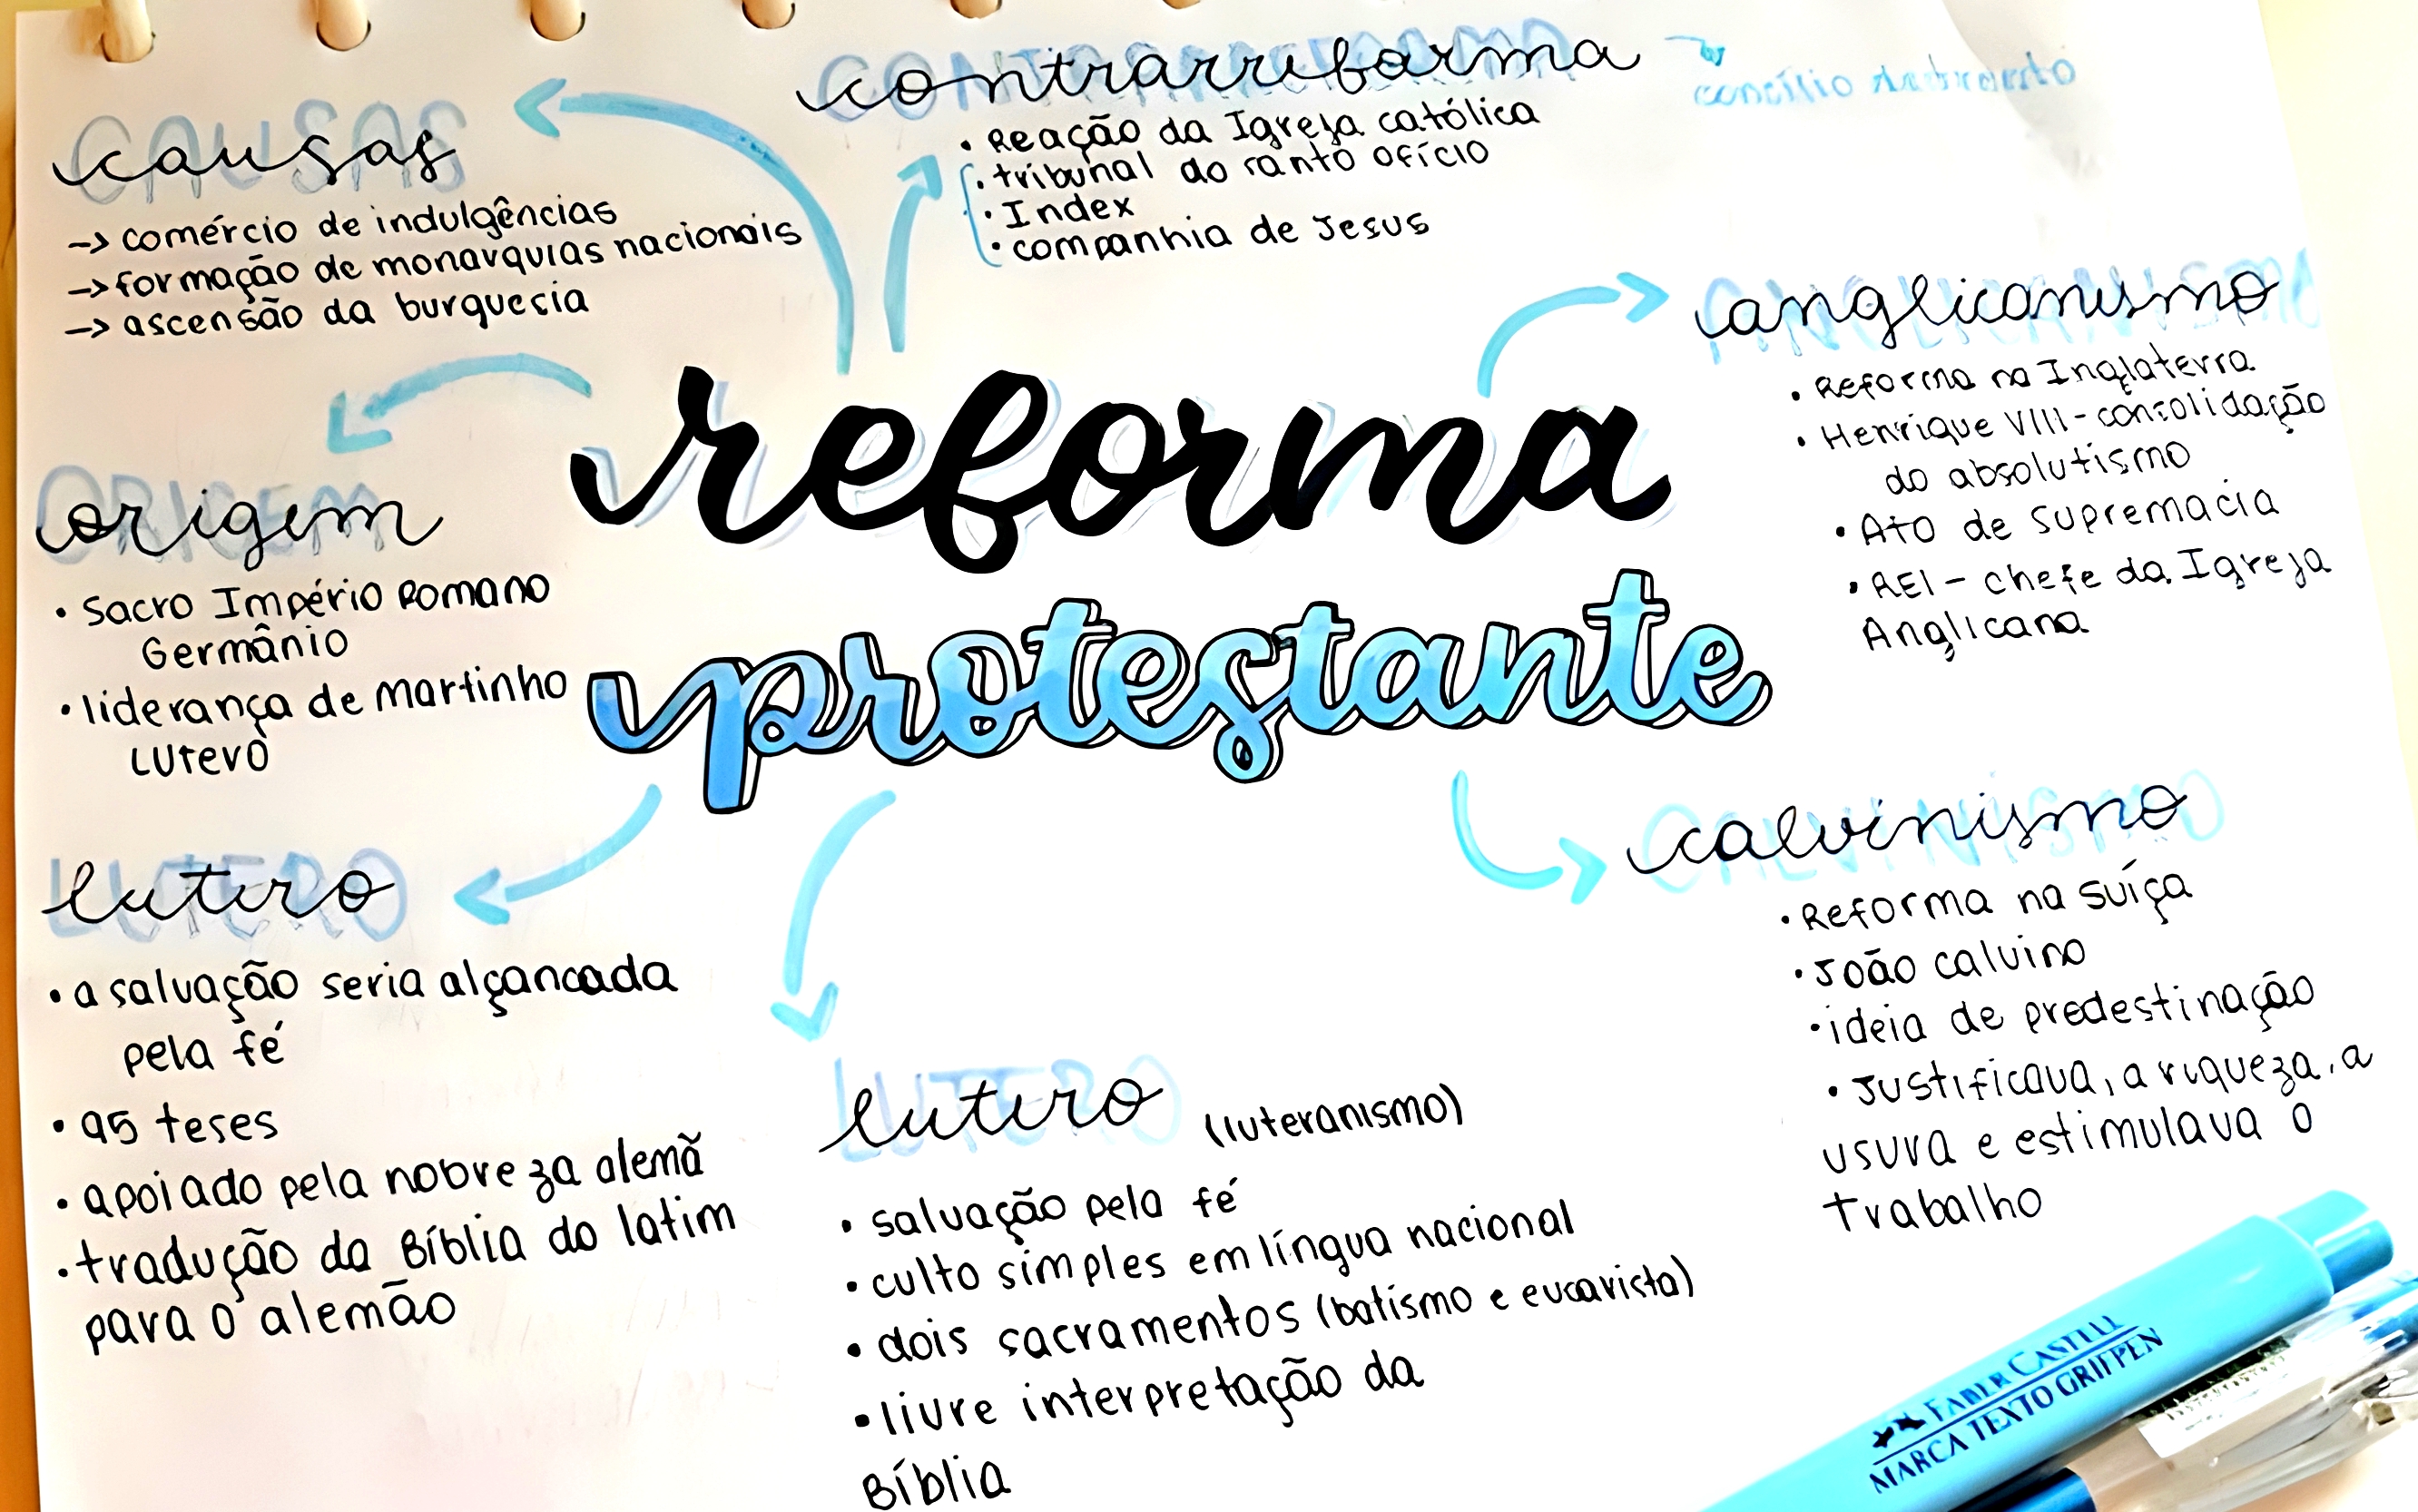 contrarreforma
concílio de trento
• Reação da Igreja católica
• tribunal do santo ofício
• Index
• companhia de Jesus
CAUSAS
causas
-> comércio de indulgências
-> formação de monarquias nacionais
-> ascensão da burguesia
reforma
protestante
ORIGEM
origem
• Sacro Império Romano
Germânio
• liderança de Martinho
Lutero
LUTERO
lutero
• a salvação seria alçancada
pela fé
• 95 teses
• apoiado pela nobreza alemã
• tradução da Bíblia do latim
para o alemão
LUTERO
lutero (luteranismo)
• salvação pela fé
• culto simples em língua nacional
• dois sacramentos (batismo e eucaristia)
• livre interpretação da
Bíblia
ANGLICANISMO
anglicanismo
• Reforma na Inglaterra
• Henrique VIII - consolidação
do absolutismo
• Ato de supremacia
• REI - chefe da Igreja
Anglicana
CALVINISMO
calvinismo
• Reforma na suíça
• João calvino
• ideia de predestinação
• Justificava, a riqueza, a
usura e estimulava o
trabalho
FABER CASTELL
MARCA TEXTO GRIFPEN